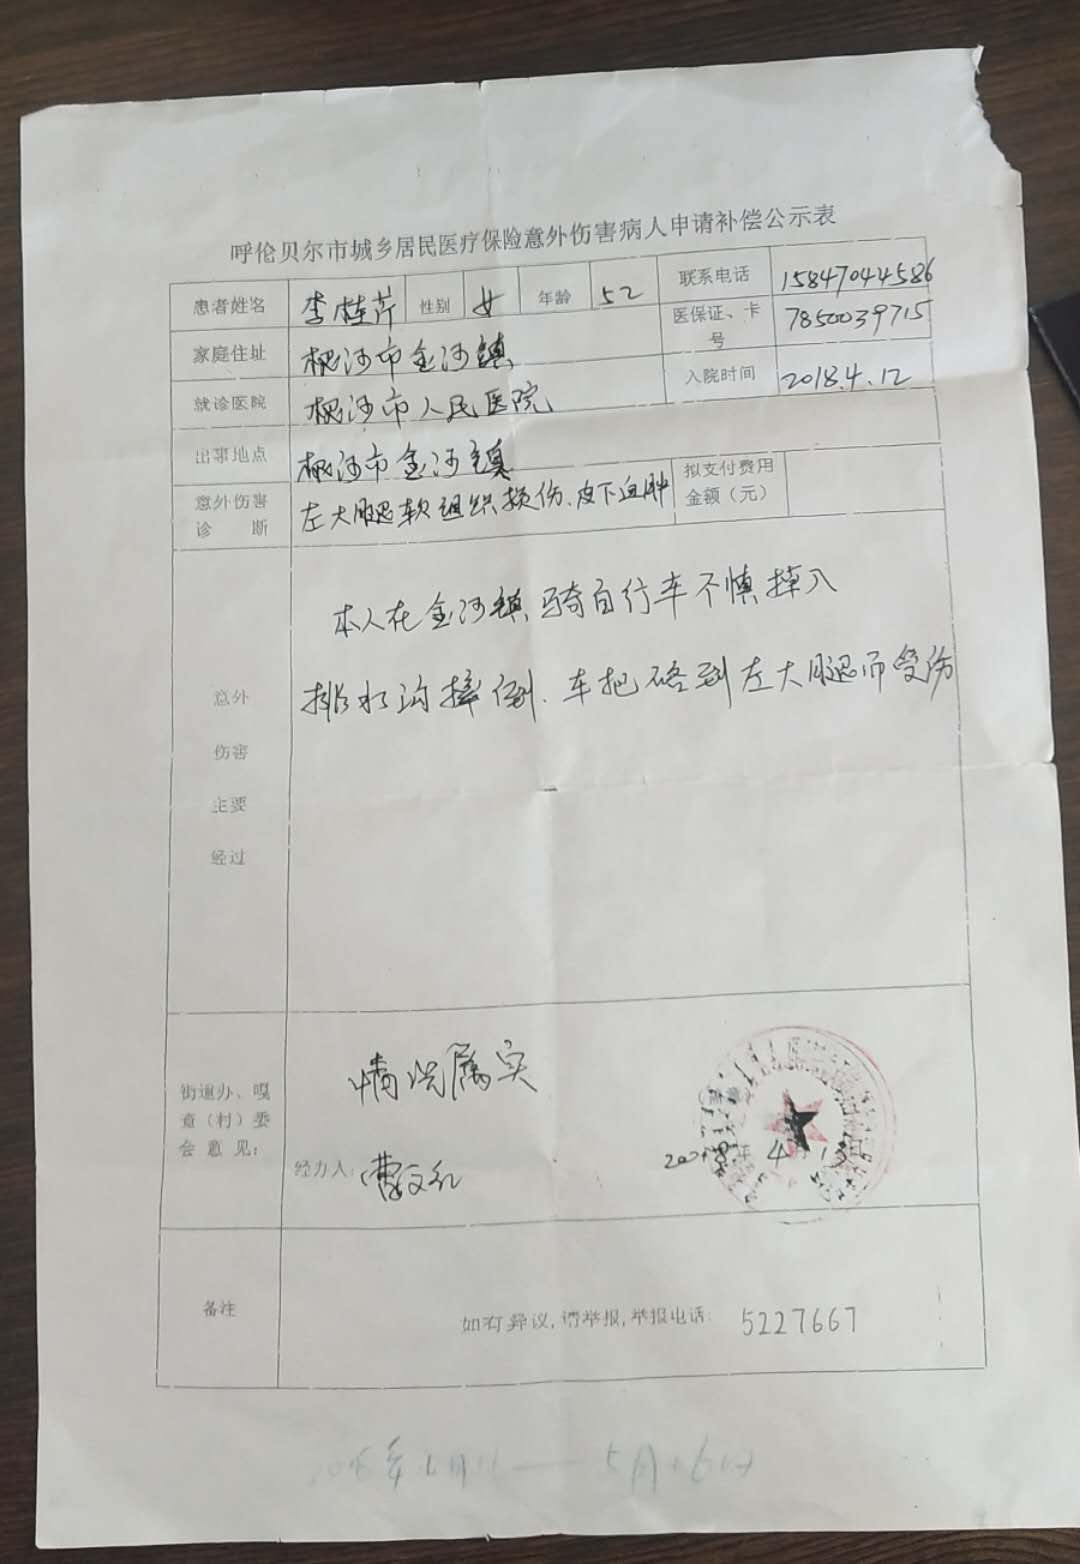 呼伦贝尔市城乡居民医疗保险意外伤害病人申请补偿公示表
患者姓名 李桂芹 性别 女 年龄 52 联系电话 15847044586
家庭住址 根河市金河镇 医保证、卡号 7850039715
就诊医院 根河市人民医院 入院时间 2018.4.12
出事地点 根河市金河镇
意外伤害诊断 左大腿软组织损伤、皮下血肿 拟支付费用金额（元）
意外
伤害
主要
经过
本人在金河镇骑自行车不慎掉入
排水沟摔倒、车把硌到左大腿而受伤
街道办、嘎
查（村）委
会意见：
情况属实
经办人：曹文
备注
如有异议,请举报,举报电话: 5227667